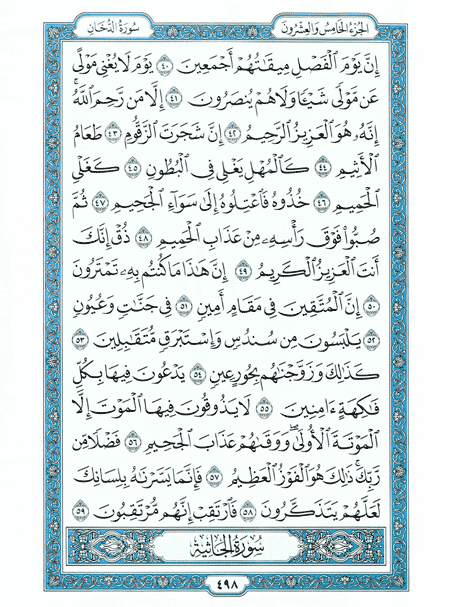 الجزء الخامس والعشرون سورة الدخان
إِنَّ يَوْمَ ٱلْفَصْلِ مِيقَٰتُهُمْ أَجْمَعِينَ ٤٠ يَوْمَ لَا يُغْنِى مَوْلًى
عَن مَّوْلًى شَيْـًٔا وَلَا هُمْ يُنصَرُونَ ٤١ إِلَّا مَن رَّحِمَ ٱللَّهُ ۚ
إِنَّهُۥ هُوَ ٱلْعَزِيزُ ٱلرَّحِيمُ ٤٢ إِنَّ شَجَرَتَ ٱلزَّقُّومِ ٤٣ طَعَامُ
ٱلْأَثِيمِ ٤٤ كَٱلْمُهْلِ يَغْلِى فِى ٱلْبُطُونِ ٤٥ كَغَلْىِ
ٱلْحَمِيمِ ٤٦ خُذُوهُ فَٱعْتِلُوهُ إِلَىٰ سَوَآءِ ٱلْجَحِيمِ ٤٧ ثُمَّ
صُبُّوا۟ فَوْقَ رَأْسِهِۦ مِنْ عَذَابِ ٱلْحَمِيمِ ٤٨ ذُقْ إِنَّكَ
أَنتَ ٱلْعَزِيزُ ٱلْكَرِيمُ ٤٩ إِنَّ هَٰذَا مَا كُنتُم بِهِۦ تَمْتَرُونَ
٥٠ إِنَّ ٱلْمُتَّقِينَ فِى مَقَامٍ أَمِينٍ ٥١ فِى جَنَّٰتٍ وَعُيُونٍ
٥٢ يَلْبَسُونَ مِن سُندُسٍ وَإِسْتَبْرَقٍ مُّتَقَٰبِلِينَ ٥٣
كَذَٰلِكَ وَزَوَّجْنَٰهُم بِحُورٍ عِينٍ ٥٤ يَدْعُونَ فِيهَا بِكُلِّ
فَٰكِهَةٍ ءَامِنِينَ ٥٥ لَا يَذُوقُونَ فِيهَا ٱلْمَوْتَ إِلَّا
ٱلْمَوْتَةَ ٱلْأُولَىٰ ۖ وَوَقَىٰهُمْ عَذَابَ ٱلْجَحِيمِ ٥٦ فَضْلًا مِّن
رَّبِّكَ ۚ ذَٰلِكَ هُوَ ٱلْفَوْزُ ٱلْعَظِيمُ ٥٧ فَإِنَّمَا يَسَّرْنَٰهُ بِلِسَانِكَ
لَعَلَّهُمْ يَتَذَكَّرُونَ ٥٨ فَٱرْتَقِبْ إِنَّهُم مُّرْتَقِبُونَ ٥٩
سورة الجاثية
٤٩٨